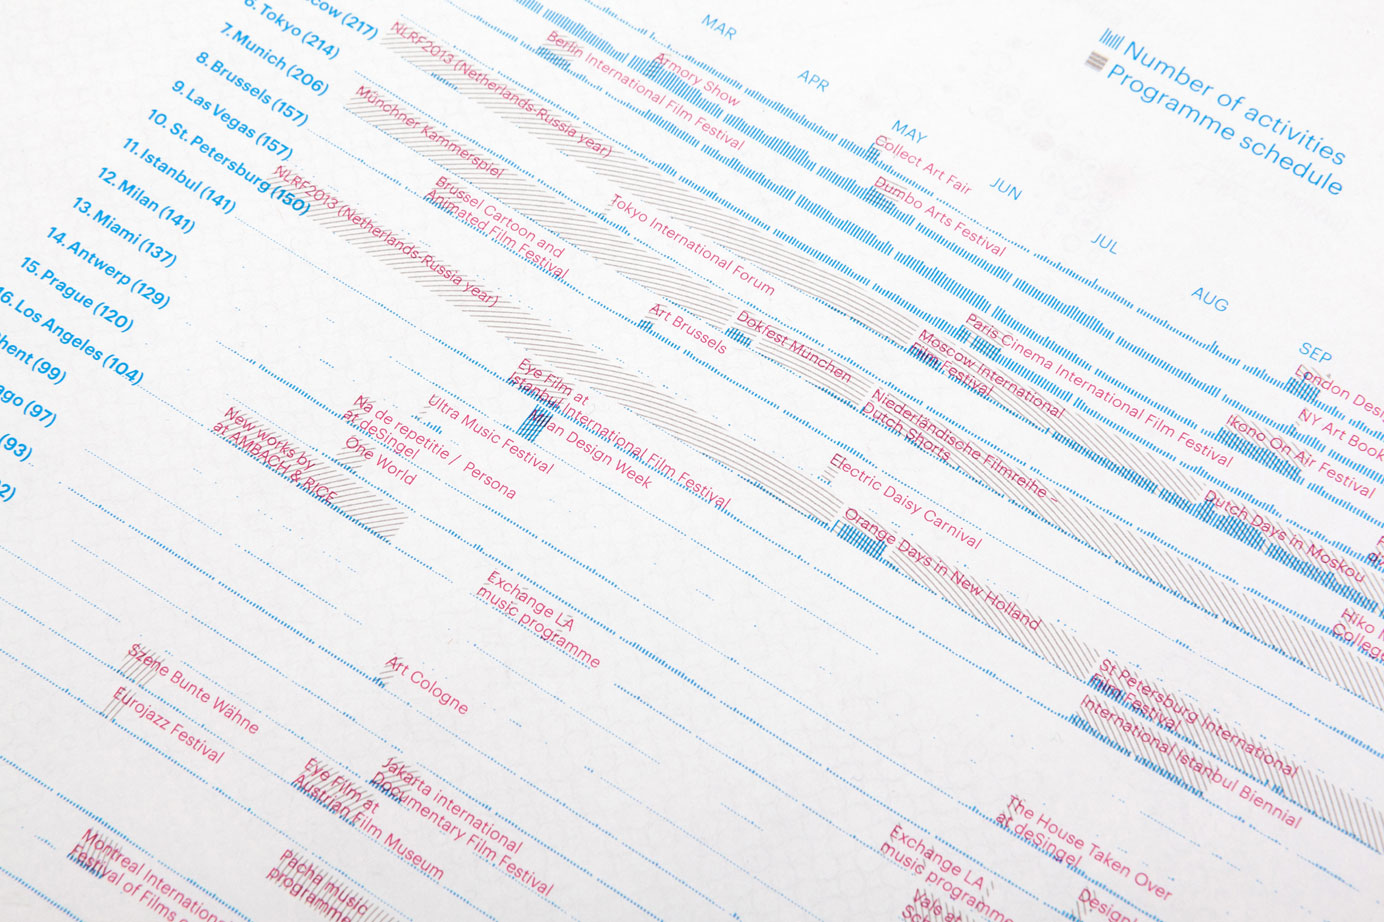 Number of activities
Programme schedule
MAR
APR
MAY
JUN
JUL
AUG
SEP
cow (217)
6. Tokyo (214)
7. Munich (206)
8. Brussels (157)
9. Las Vegas (157)
10. St. Petersburg (150)
11. Istanbul (141)
12. Milan (141)
13. Miami (137)
14. Antwerp (129)
15. Prague (120)
16. Los Angeles (104)
hent (99)
ago (97)
(93)
2)
NLRF2013 (Netherlands-Russia year)
Berlin International Film Festival
Armory Show
Collect Art Fair
Dumbo Arts Festival
Münchner Kammerspiel
NLRF2013 (Netherlands-Russia year)
Brussel Cartoon and
Animated Film Festival
Tokyo International Forum
Art Brussels
Dokfest München
Moscow International
Film Festival
Paris Cinema International Film Festival
London Desi
NY Art Book
Ikono On Air Festival
Niederländische Filmreihe –
Dutch Shorts
Dutch Days in Moskou
Eye Film at
Istanbul International Film Festival
Milan Design Week
Ultra Music Festival
Na de repetitie / Persona
at deSingel
One World
New works by
at AMBACH & RICE
Electric Daisy Carnival
Orange Days in New Holland
Hiko
Colleg
St Petersburg International
Film Festival
International Istanbul Biennial
Exchange LA
music programme
Art Cologne
Szene Bunte Wähne
Eurojazz Festival
Eye Film at
Austrian Film Museum
Jakarta international
Documentary Film Festival
The House Taken Over
at deSingel
Exchange LA
music programme
Design
Montreal Internationa
Festival of Films
Pacha music
programme